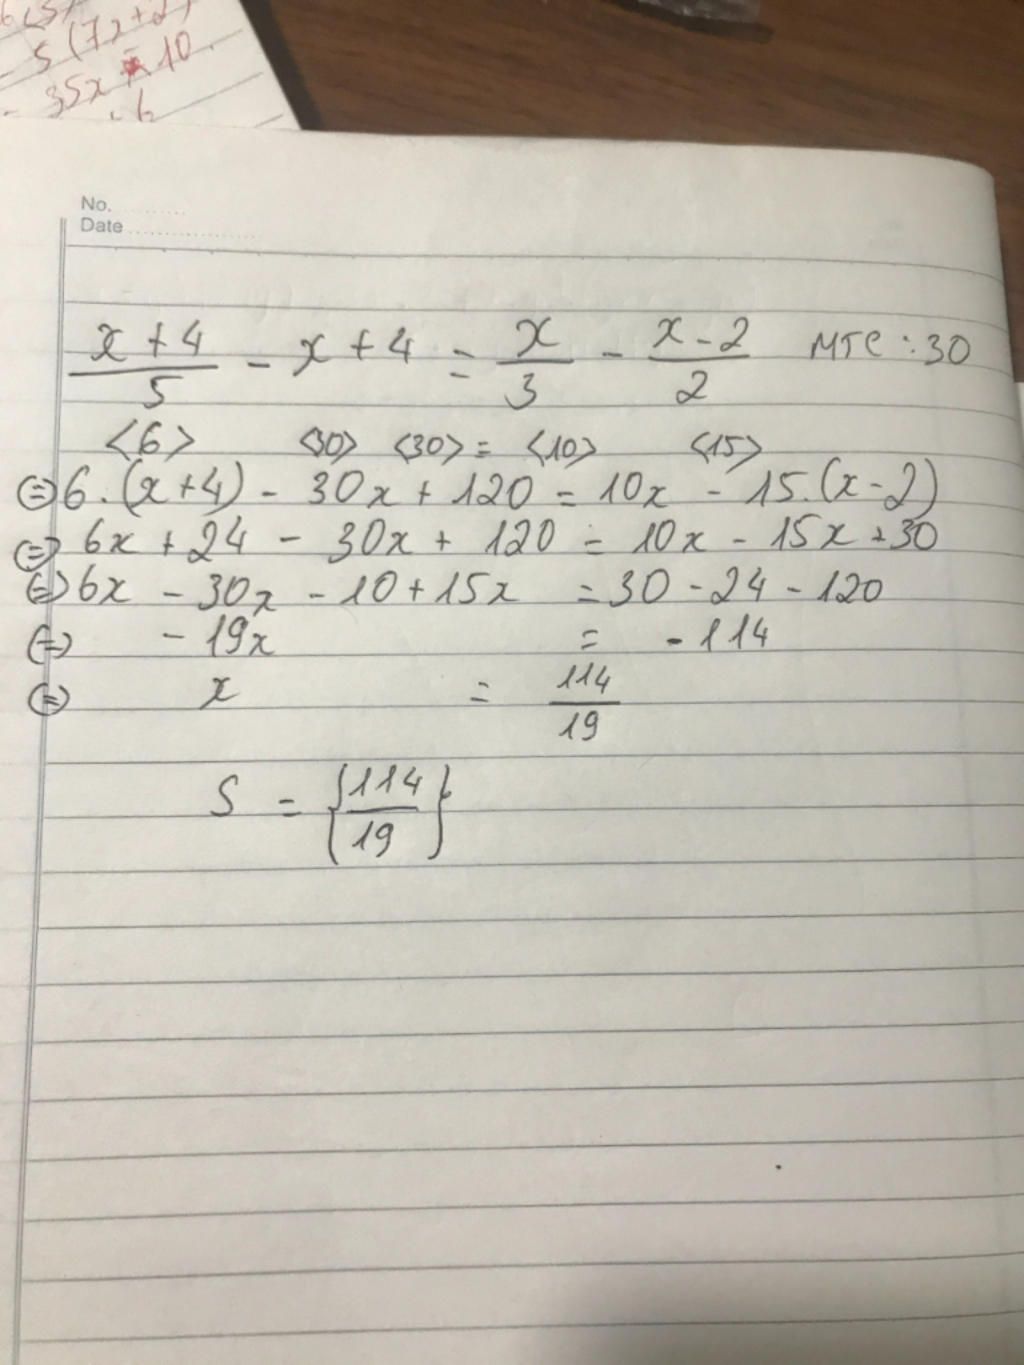 5(7x+2)
35x 10
6
No.
Date
x+4/5 - x+4 = x/3 - x-2/2 MTC: 30
<6> <30> <30> = <10> <15>
(=) 6.(x+4) - 30x + 120 = 10x - 15.(x-2)
(=) 6x + 24 - 30x + 120 = 10x - 15x + 30
(=) 6x - 30x - 10 + 15x = 30 - 24 - 120
(=) - 19x = - 114
(=) x = 114/19
S = {114/19}